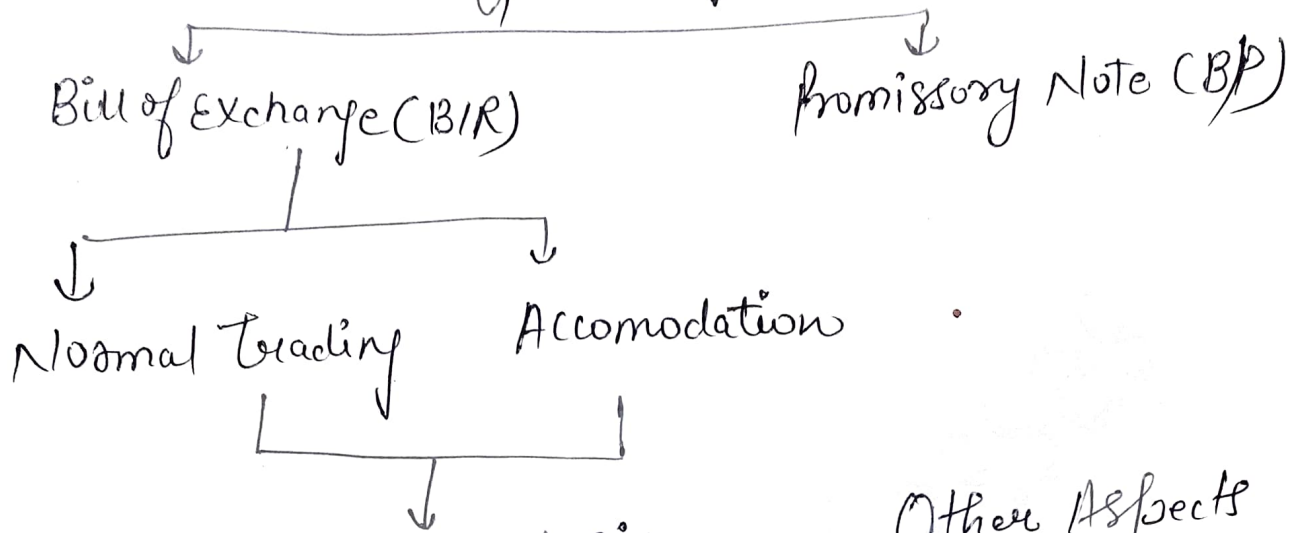 Bill of Exchange (B/R)
Promissory Note (B/P)
Normal Trading
Accomodation
Other Aspects